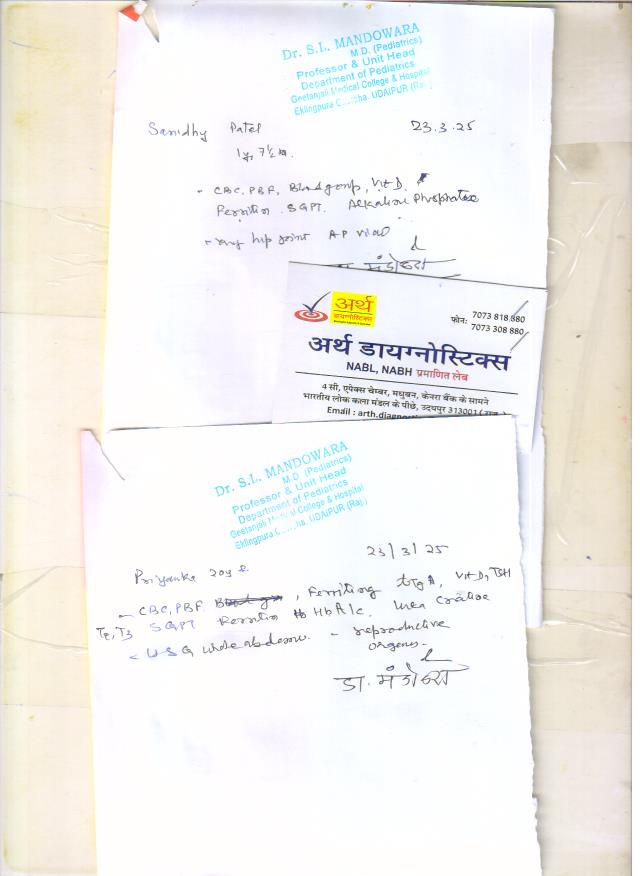 Dr. S.L. MANDOWARA
M.D. (Pediatrics)
Professor & Unit Head
Department of Pediatrics
Geetanjali Medical College & Hospital
Eklingpura UDAIPUR (Raj.)
Sanidhy Patel 23.3.25
- CBC, PBF, Blood group, Vit D,
Ferritin SGPT. Alkaline Phosphatase
- hip joint AP
डा. मंडोवरा
अर्थ
डायग्नोस्टिक्स
फोन: 7073 818 880
7073 308 880
अर्थ डायग्नोस्टिक्स
NABL, NABH प्रमाणित लेब
4 सी, एपेक्स चेम्बर, मधुबन, केनरा बैंक के सामने
भारतीय लोक कला मंडल के पीछे, उदयपुर 313001
Email : arth.
Dr. S.L. MANDOWARA
M.D. (Pediatrics)
Professor & Unit Head
Department of Pediatrics
Geetanjali Medical College & Hospital
Eklingpura UDAIPUR (Raj.)
23/3/25
Priyanka 20
- CBC, PBF. , tTgA, Vit D, TSH
T3 SGPT HbA1c. Urea
- USG - reproductive
organs
डा. मंडोवरा